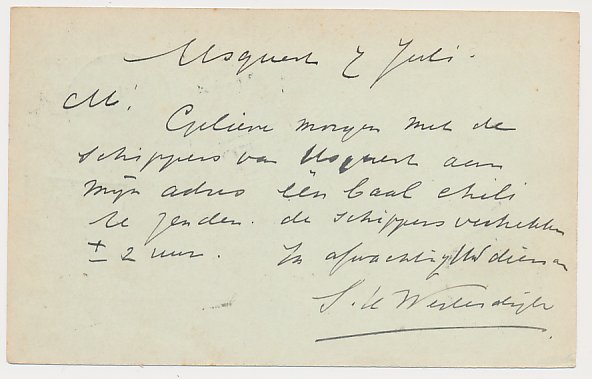 Usquert 7 Juli.
M!
Gelieve morgen met de
schippers van Usquert aan
mijn adres één baal chili
te zenden. de schippers vertrekken
± 2 uur. In afwachting UWdienaar
S. v Westerdijk